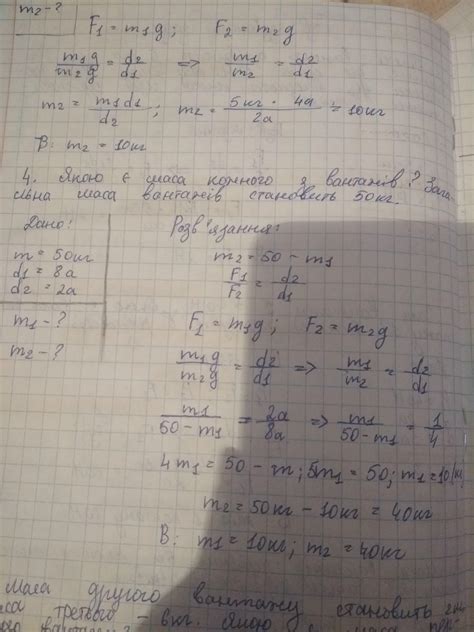 m2-?
F1 = m1g; F2 = m2g
m1g/m2g = d2/d1 => m1/m2 = d2/d1
m2 = m1d1/d2; m2 = 5кг · 4a/2a = 10кг
В: m2 = 10кг
4. Якою є маса кожного з вантажів? Зага-
льна маса вантажів становить 50кг.
Дано: Розв'язання:
m = 50кг
d1 = 8a
d2 = 2a
m1 - ?
m2 - ?
m2 = 50 - m1
F1/F2 = d2/d1
F1 = m1g; F2 = m2g
m1g/m2g = d2/d1 => m1/m2 = d2/d1
m1/50-m1 = 2a/8a => m1/50-m1 = 1/4
4m1 = 50 - m; 5m1 = 50; m1 = 10
m2 = 50кг - 10кг = 40кг
В: m1 = 10кг; m2 = 40кг
Маса другого вантажу становить
третього = 6кг.